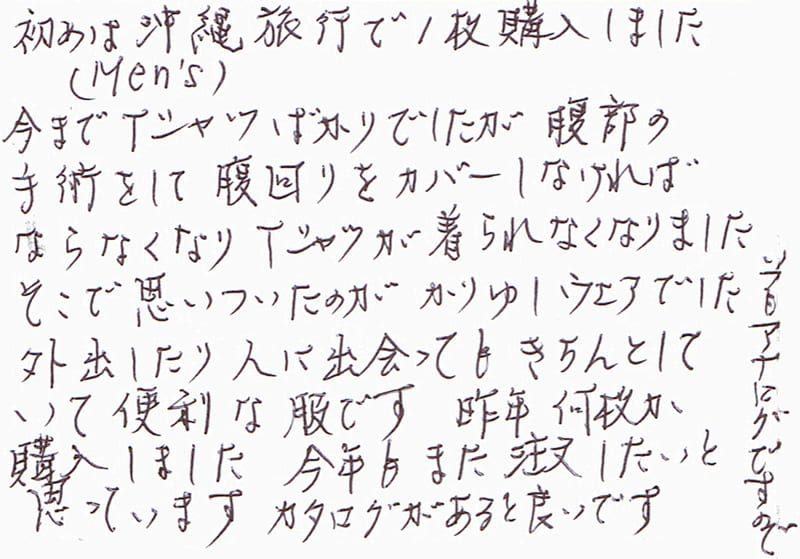 初めは沖縄旅行で1枚購入しました
(Men's)
今までTシャツばかりでしたが 腹部の
手術をして腹回りをカバーしなければ
ならなくなりTシャツが着られなくなりました
そこで思いついたのがかりゆしウェアでした
外出したり人に出会ってもきちんとして
いて便利な服です 昨年何枚か
購入しました 今年もまた注文したいと
思っています カタログがあると良いです
いつもアナログですので